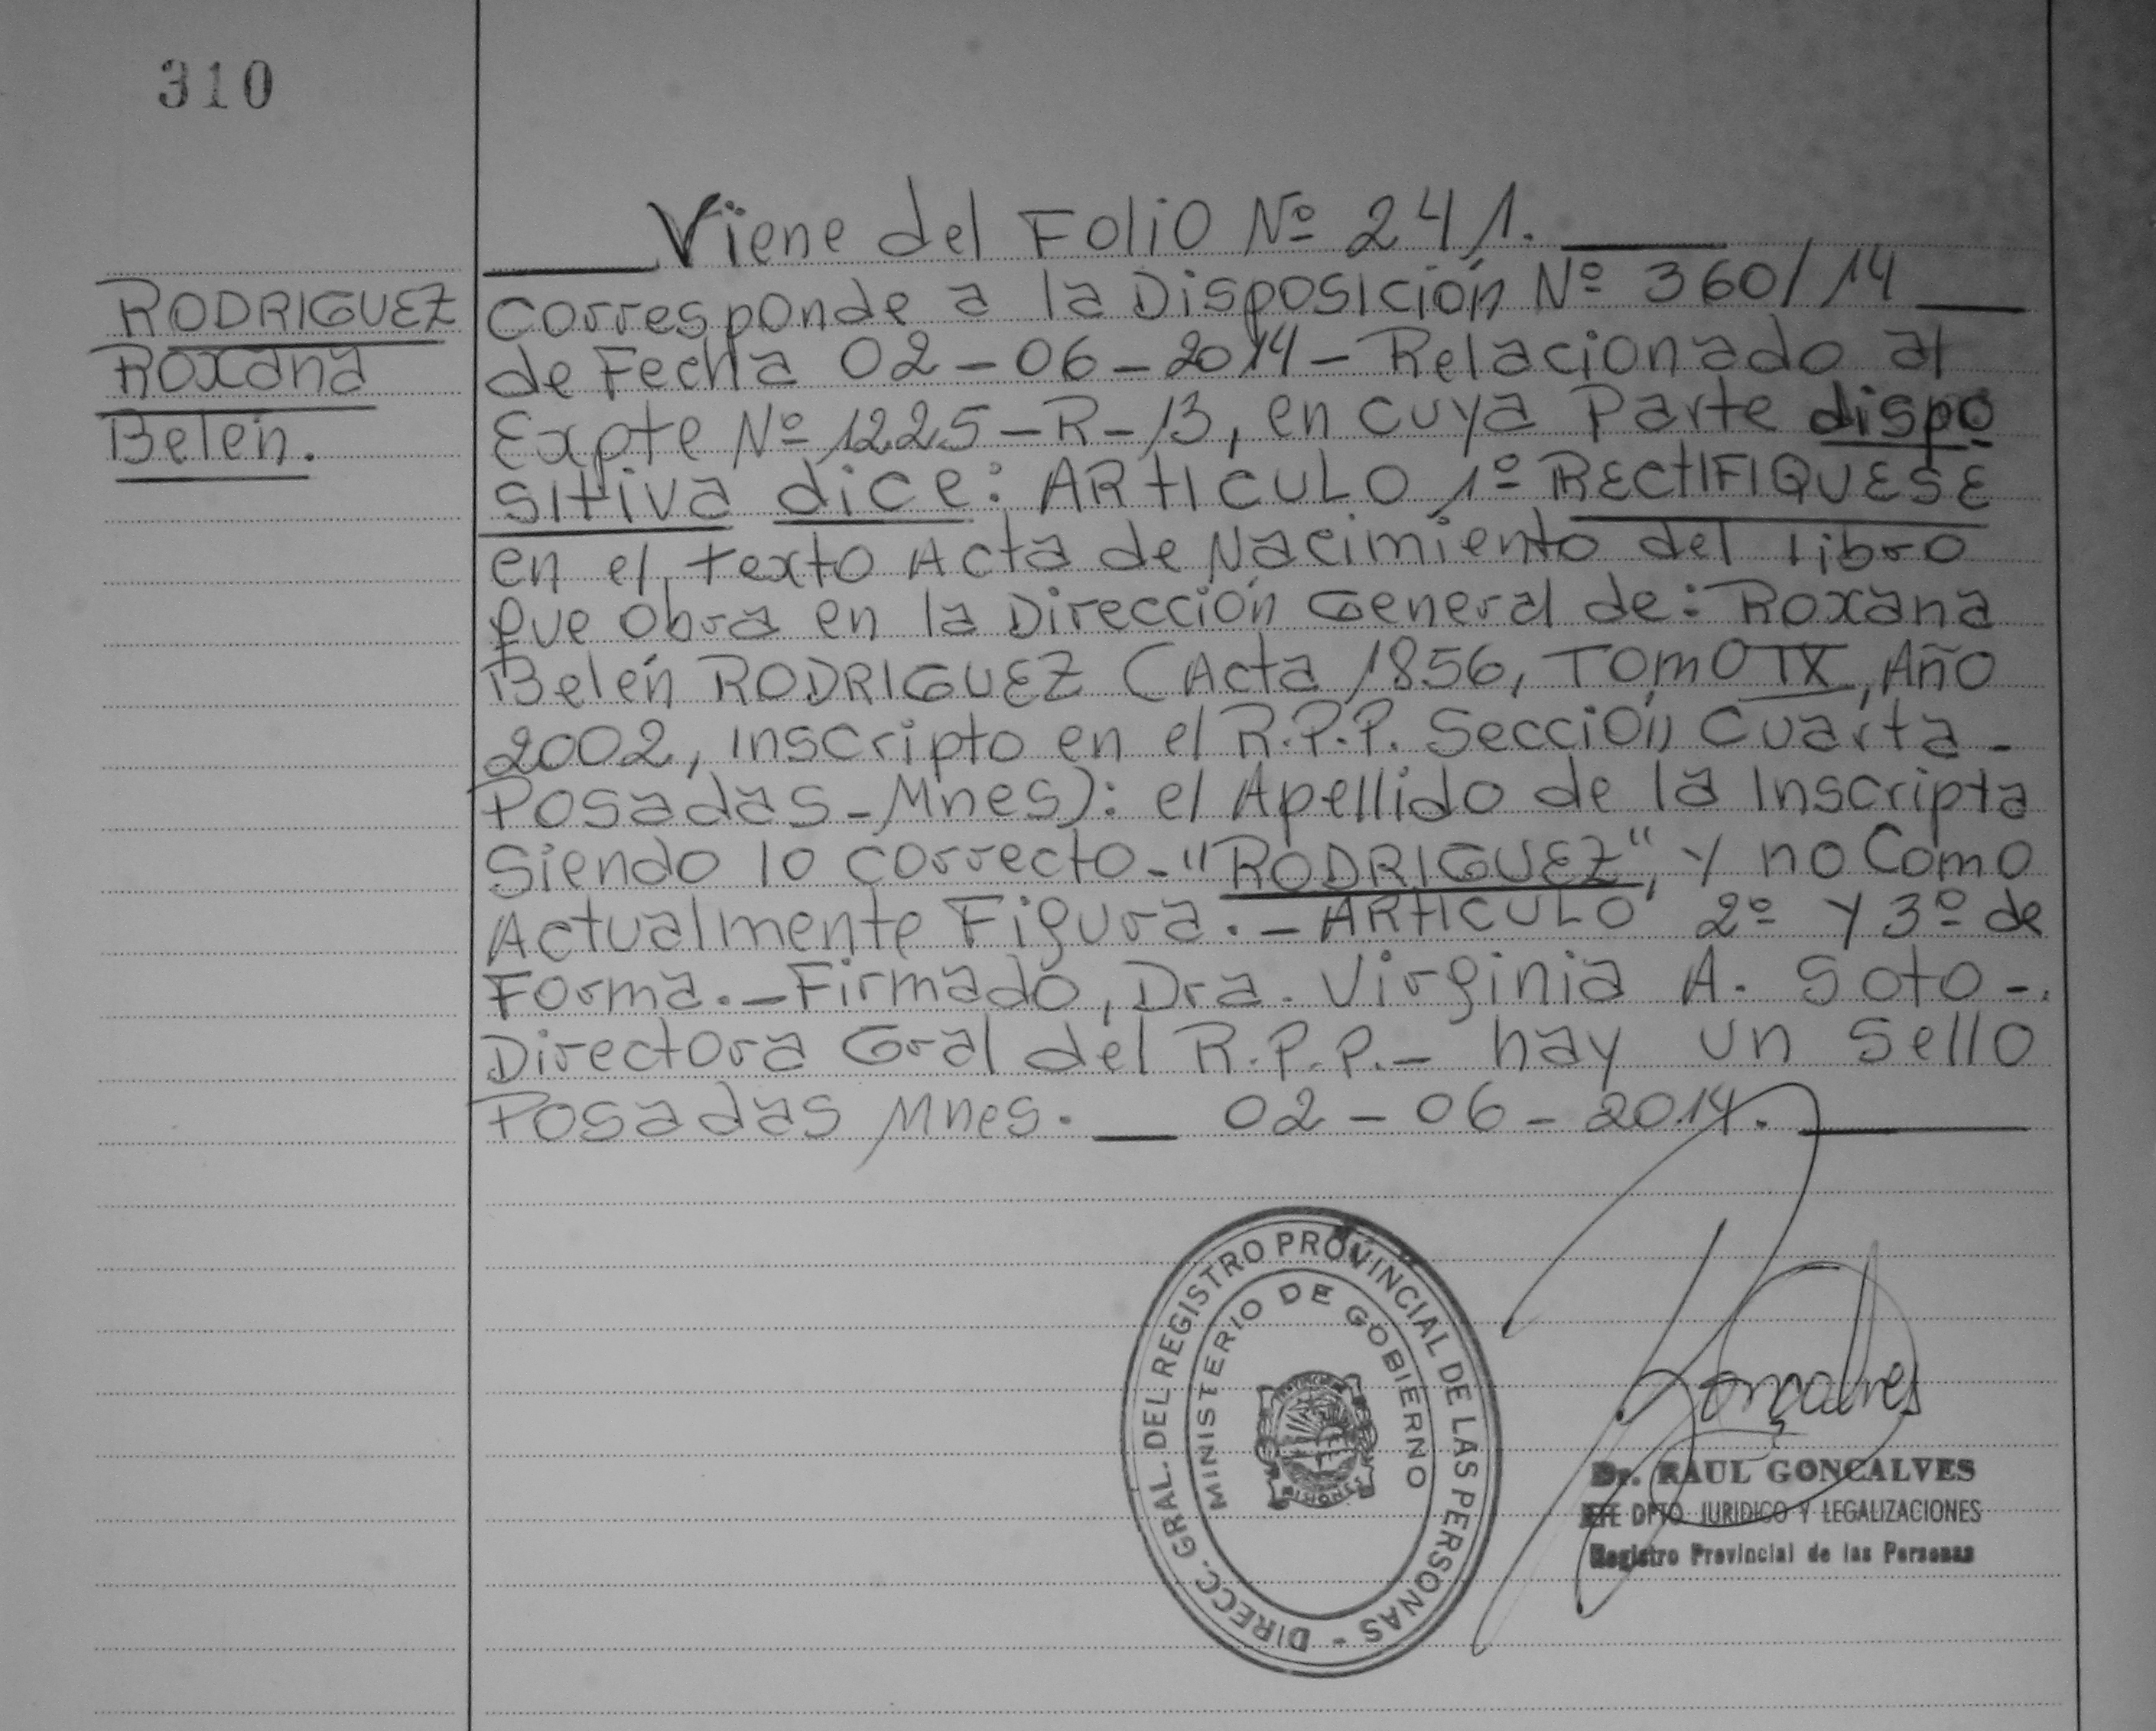 310
RODRIGUEZ
Roxana
Belén.
Viene del Folio Nº 241.
Corresponde a la Disposición Nº 360/14
de Fecha 02-06-2014- Relacionado al
Expte Nº 1225-R-13, en cuya Parte dispo
sitiva dice: ARTICULO 1º RECTIFIQUESE
en el texto Acta de Nacimiento del Libro
que obra en la Dirección General de: Roxana
Belén RODRIGUEZ (Acta 1856, TOMO IX, Año
2002, inscripto en el R.P.P. Sección Cuarta-
Posadas-Mnes): el Apellido de la Inscripta
Siendo lo correcto-"RODRIGUEZ", y no Como
Actualmente Figura.-ARTICULO 2º y 3º de
Forma.-Firmado, Dra. Virginia A. Soto-.
Directora Gral del R.P.P.- hay un Sello
Posadas Mnes. 02-06-2014.
DIRECC. GRAL. DEL REGISTRO PROVINCIAL DE LAS PERSONAS -
MINISTERIO DE GOBIERNO
PROVINCIA
MISIONES
Gonçalves
Dr. RAUL GONCALVES
JEFE DPTO JURIDICO Y LEGALIZACIONES
Registro Provincial de las Personas